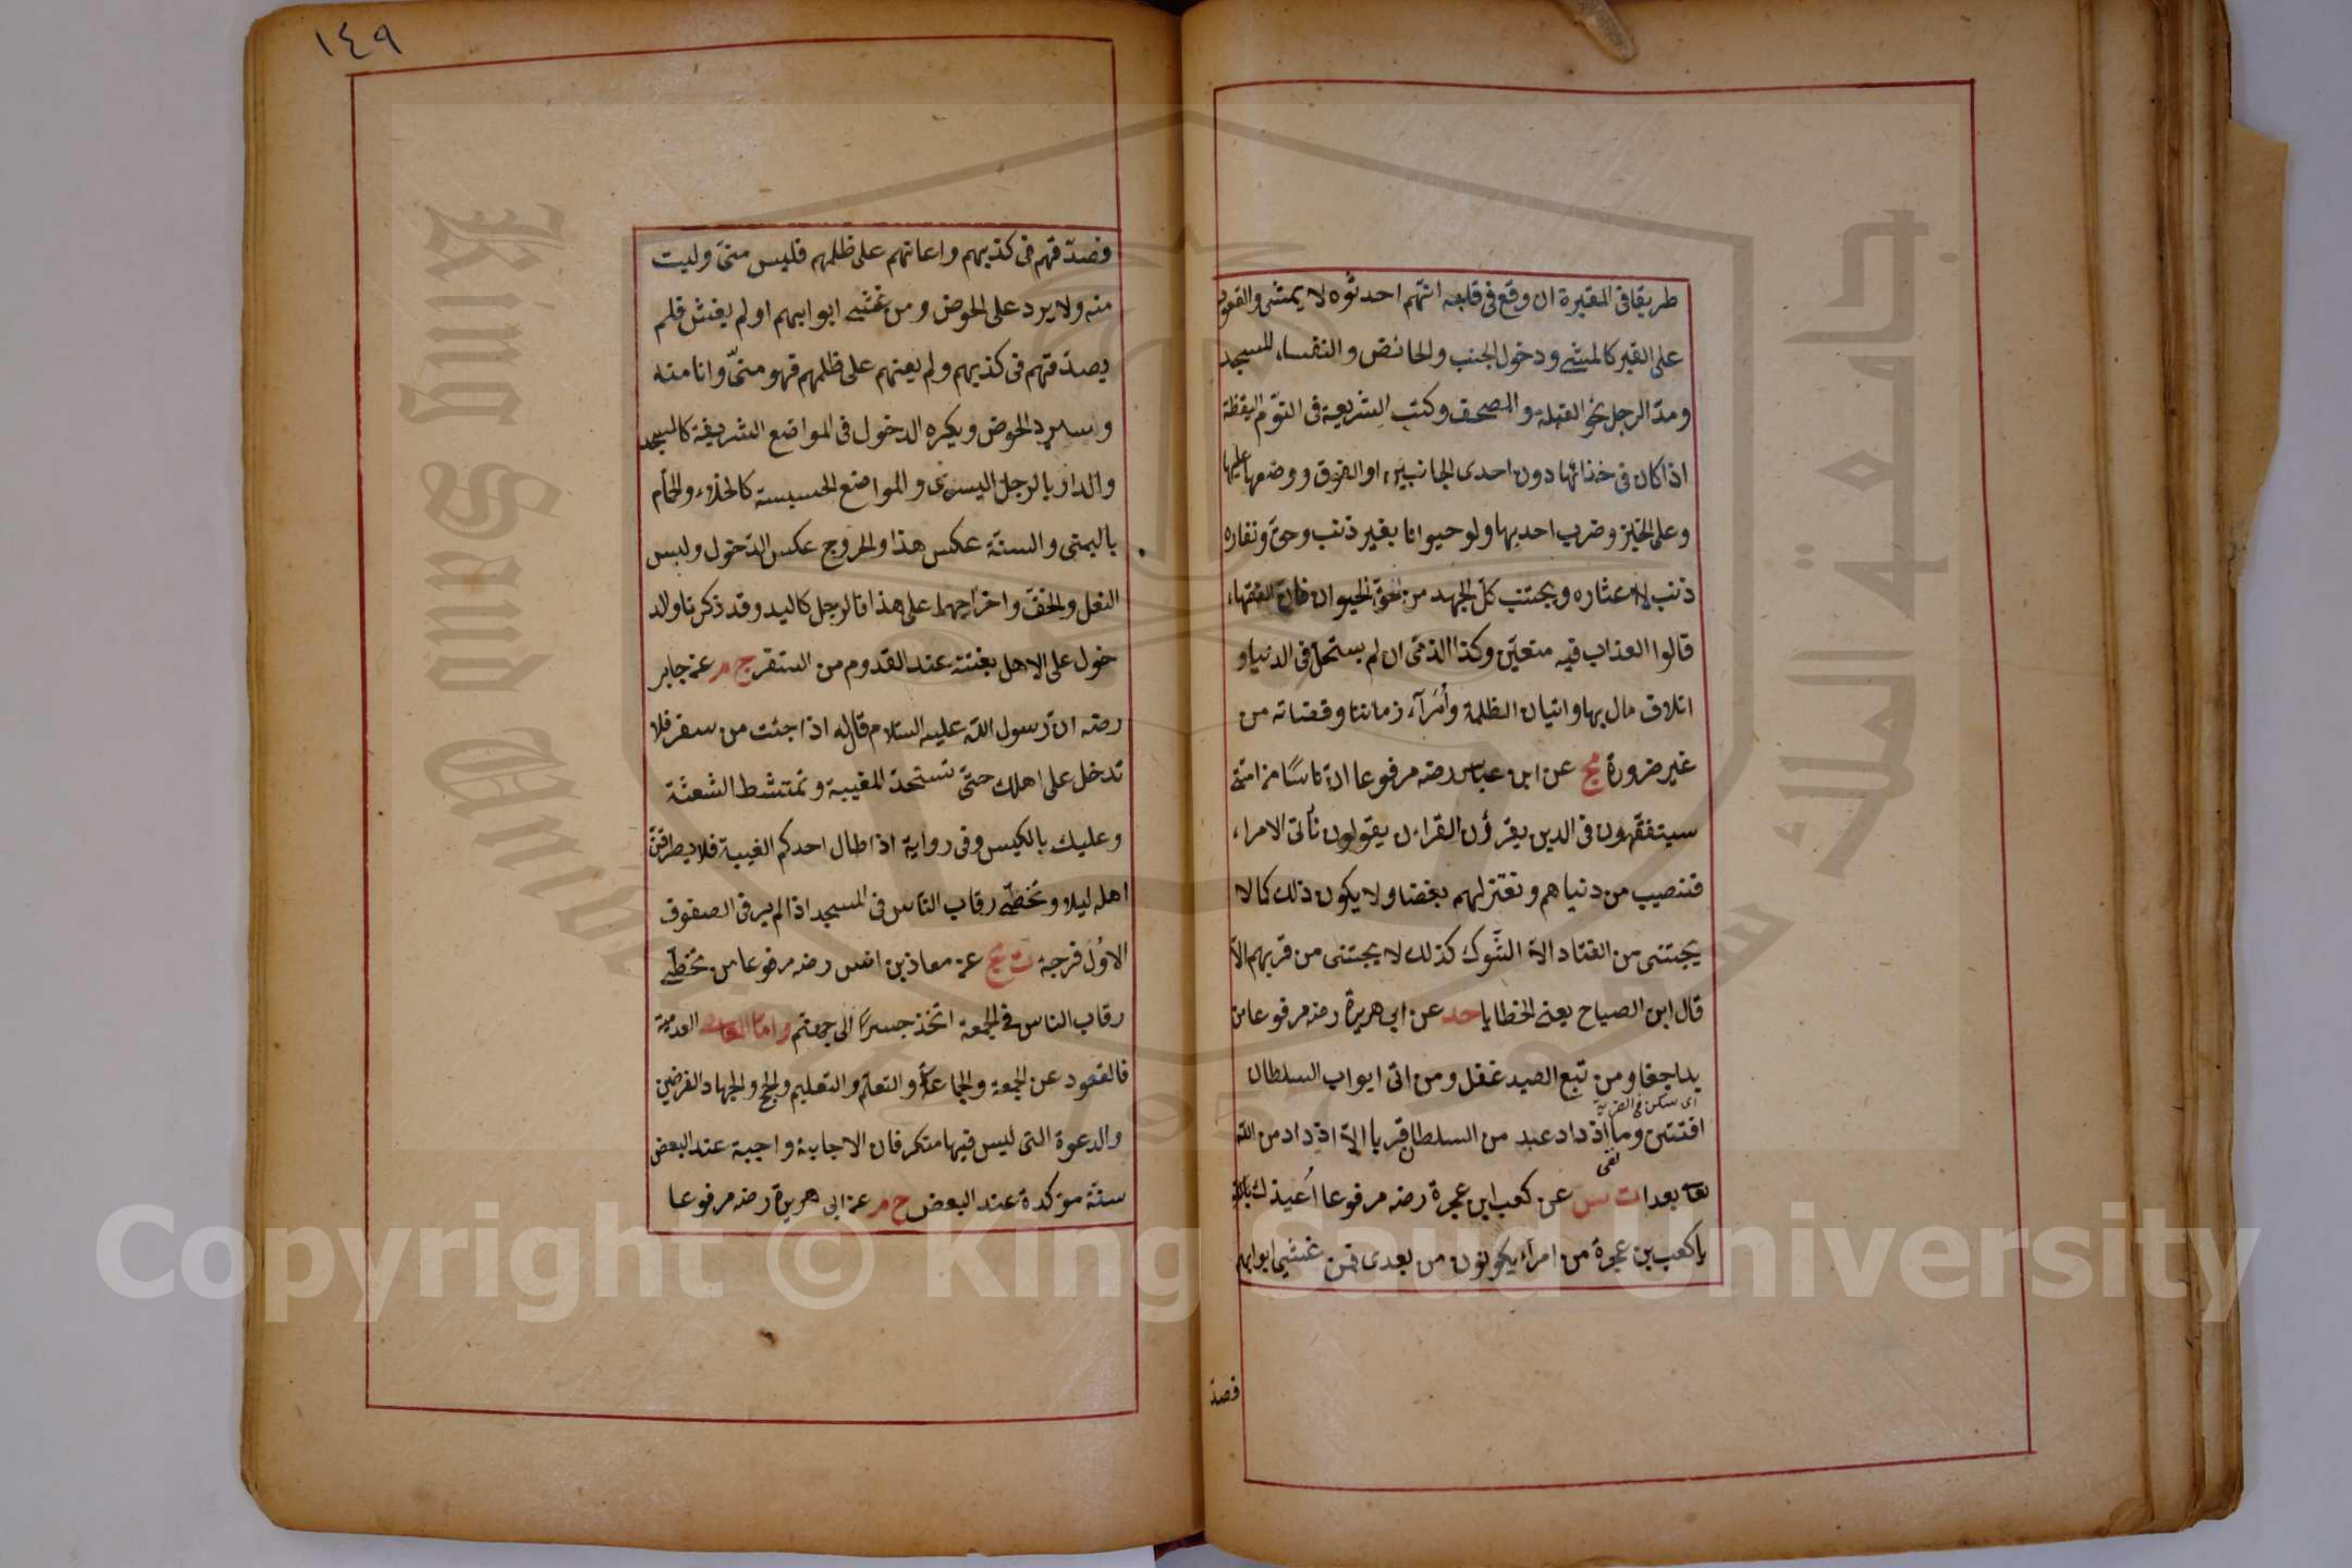 طريقا فى المقبرة ان وقع فى قلبه انهم احدثوه لا يمشى والقعود
على القبر كالمشى ودخول الجنب والحائض والنفساء للمسجد
ومدّ الرجل نحو القبلة والمصحف وكتب الشريعة فى النوم اليقظة
اذا كان فى حذائها دون احدى الجانبين او الفوق ووضعها عليها
وعلى الخبز وضرب احد بها ولو حيوانا بغير ذنب وحق ونفاره
ذنب لا عثاره ويجتنب كل الجهد من حق الحيوان فان الفقهاء
قالوا العذاب فيه متعين وكذا الذمى ان لم يستحل فى الدنيا و
اتلاف مال بها واتيان الظلمة وأمَرآء زماننا وقضاته من
غير ضرورة مج عن ابن عباس رضه مرفوعا ان ناسًا من امتى
سيتفقهون فى الدين يقرؤن القراءن يقولون نأتى الامراء
فنصيب من دنياهم ونعتزلهم بغضنا ولا يكون ذلك كما لا
يجتنى من القتاد الا الشوك كذلك لا يجتنى من قربهم الا
قال ابن الصباح يعنى الخطايا حد عن ابى هريرة رضه مرفوعا من
بدا جفا ومن تبع الصيد غفل ومن اتى ابواب السلطان
اى سكن فى القرية
افتتن وما اذداد عبد من السلطان قربا الا اذداد من الله
تعا بعدا ت س عن كعب ابن عجرة رضه مرفوعا اُعيذك بالله
يا كعب بن عجرة من امراء يكونون من بعدى فمن غشى ابوابهم
فصد
١٤٩
فصدّقهم فى كذبهم واعانهم على ظلمهم فليس منى وليت
منه ولا يرد على الحوض ومن غشى ابوابهم او لم يغش فلم
يصدّقهم فى كذبهم ولم يعنهم على ظلمهم فهو منّى وانا منه
وسيرد الحوض ويكره الدخول فى المواضع الشريفة كالمسجد
والدار بالرجل اليسرى والمواضع الخسيسة كالخلاء والحمام
باليمنى والسنة عكس هذا والخروج عكس الدخول ولبس
النعل والخف واخراجهما على هذا فالرجل كاليد وقد ذكرنا والد
خول على الاهل بغتة عند القدوم من السفر خ م عن جابر
رضه ان رسول الله عليه السلام قال له اذا جئت من سفر فلا
تدخل على اهلك حتى تستحد المغيبة وتمتشط الشعثة
وعليك بالكيس وفى رواية اذا طال احدكم الغيبة فلا يطرقن
اهله ليلا وتخطّى رقاب الناس فى المسجد اذا لم ير فى الصفوف
الاول فرجة ت مج عن معاذ بن انس رضه مرفوعا من تخطّى
رقاب الناس فى الجمعة اتخذ جسرًا الى جهنم واما العدمية
فالقعود عن الجمعة والجماعة والتعلم والتعليم والحج والجهاد الفرضين
والدعوة التى ليس فيها منكر فان الاجابة واجبة عند البعض
سنة مؤكدة عند البعض خ م عن ابى هريرة رضه مرفوعا
Copyright © King Saud University
King Saud University
جامعة الملك سعود
1957